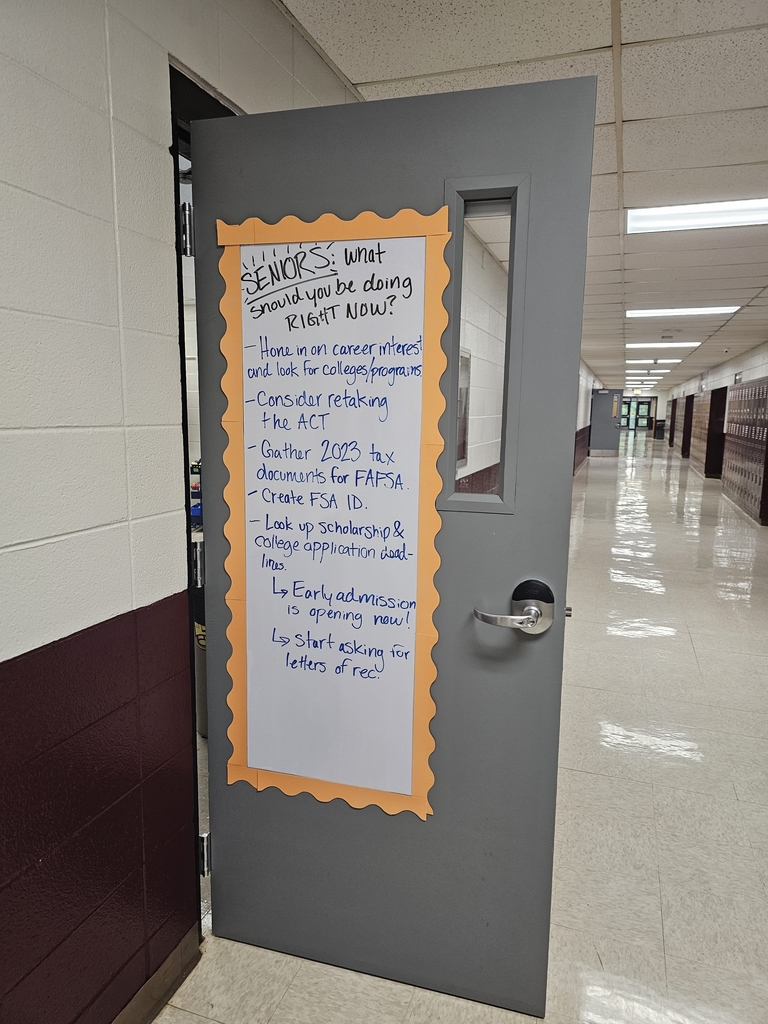 SENIORS: What
should you be doing
RIGHT NOW?
- Hone in on career interest
and look for colleges/programs
- Consider retaking
the ACT
- Gather 2023 tax
documents for FAFSA.
- Create FSA ID.
- Look up scholarship &
college application dead-
lines.
↳ Early admission
is opening now!
↳ Start asking for
letters of rec.